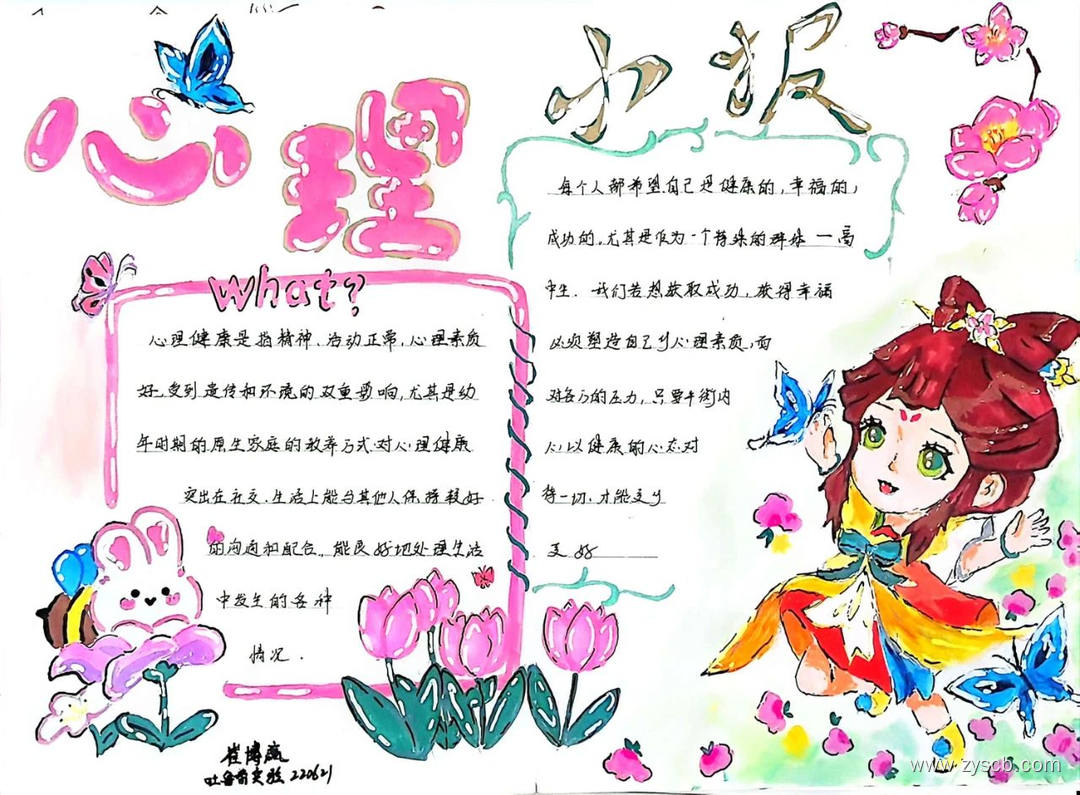 心理
小报
What?
心理健康是指精神、活动正常,心理素质
好.受到遗传和环境的双重影响,尤其是幼
年时期的原生家庭的教养方式对心理健康
突出在社交、生活上能与其他人保持较好
的沟通和配合。能良好地处理生活
中发生的各种
情况.
每个人都希望自己是健康的,幸福的,
成功的。尤其是作为一个特殊的群体一高
中生.我们若想获取成功,获得幸福
必须塑造自己的心理素质,面
对各方的压力,只要
心以健康的心态对
待一切.才能变
更好
崔博
吐鲁 220621
www.zyscb.com